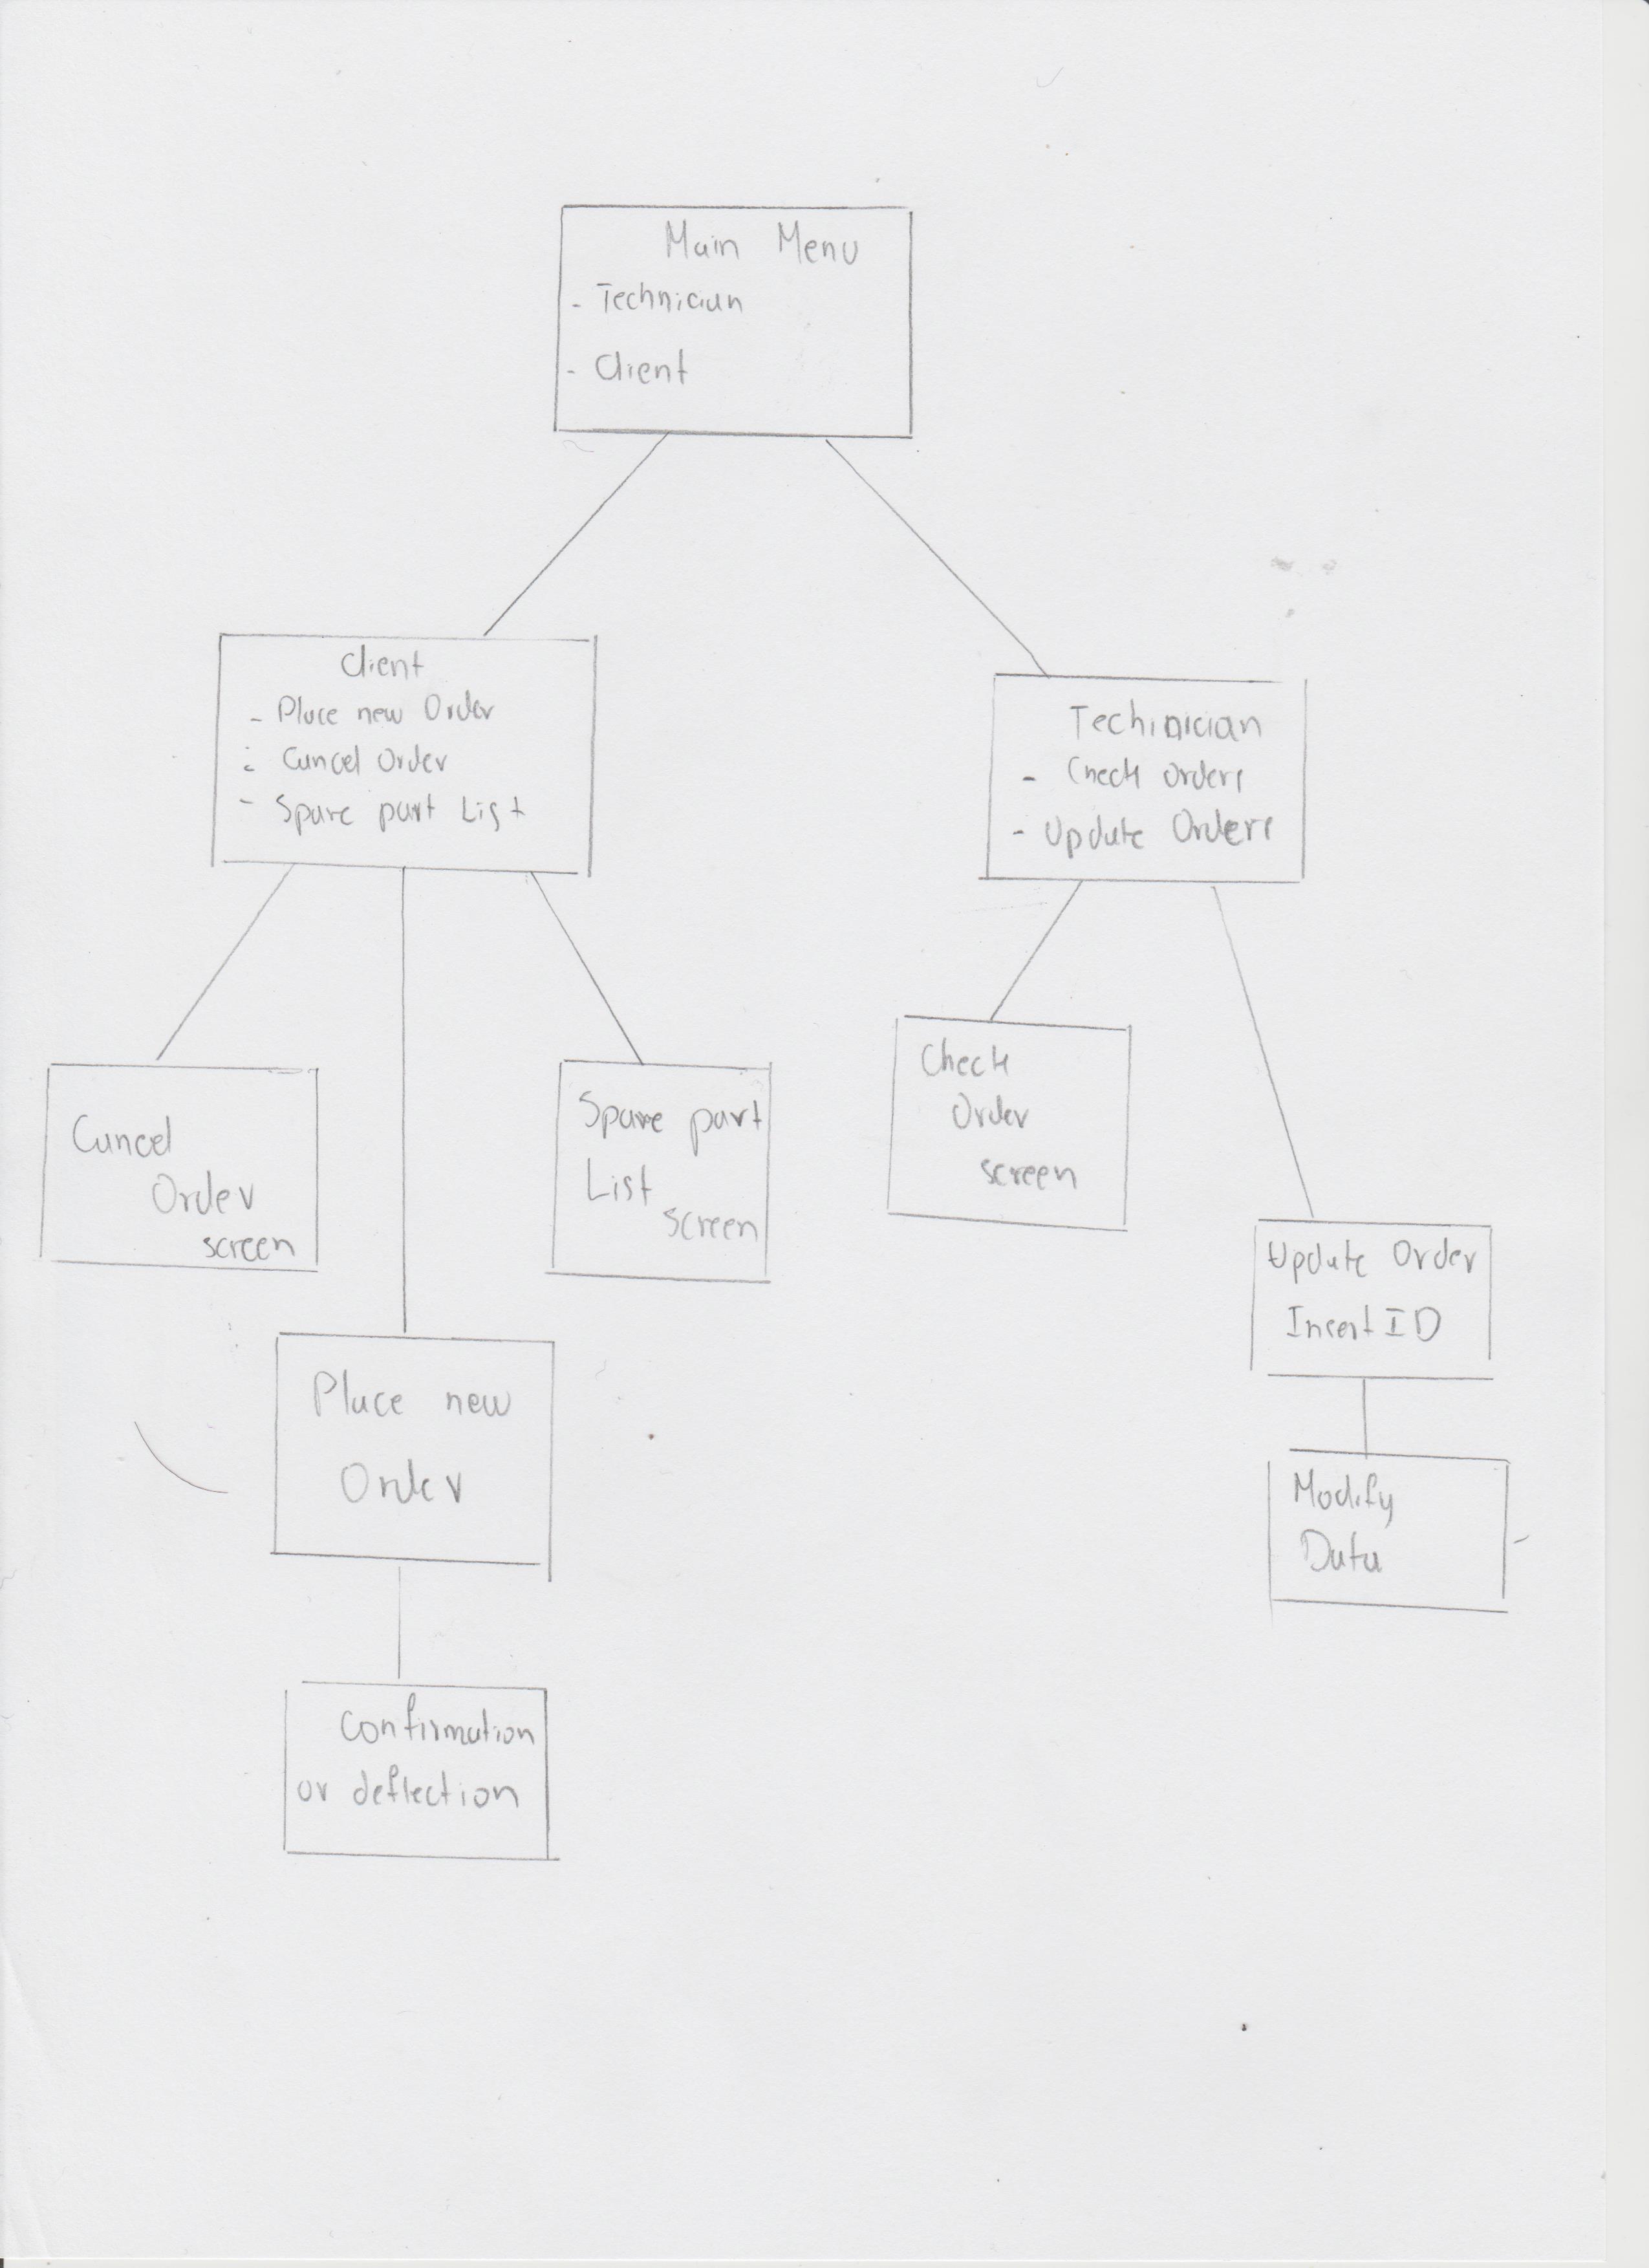 Main Menu
- Technician
- Client
Client
- Place new Order
- Cancel Order
- Spare part List
Techinician
- Check orders
- Update Orders
Cancel
Order
screen
Spare part
List
screen
Check
Order
screen
Update Order
Insert ID
Place new
Order
Modify
Data
Confirmation
or deflection